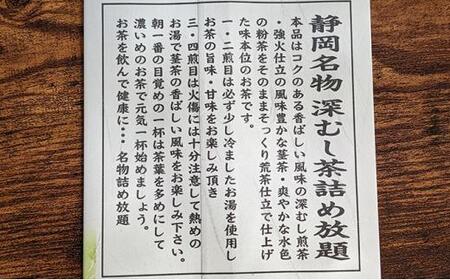 静岡名物 深むし茶詰め放題
本品はコクのある香ばしい風味の深むし煎茶
・強火仕立の風味豊かな茎茶・爽やかな水色
の粉茶をそのままそっくり荒茶仕立で仕上げ
た味本位のお茶です。
一・二煎目は必ず少し冷ましたお湯を使用し
お茶の旨味・甘味をお楽しみ頂き
三・四煎目は火傷には十分注意して熱めの
お湯で茎茶の香ばしい風味をお楽しみ下さい。
朝一番の目覚めの一杯は茶葉を多めにして
濃いめのお茶で元気一杯始めましょう。
お茶を飲んで健康に・・・ 名物詰め放題